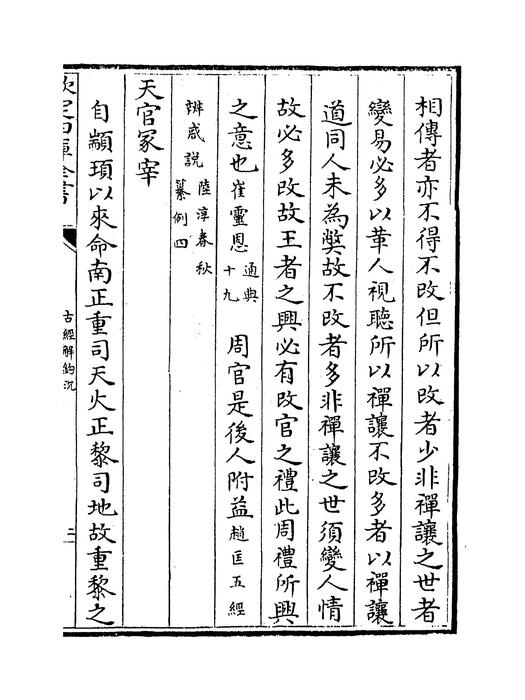 相傳者亦不得不改但所以改者少非禪讓之世者
變易必多以革人視聽所以禪讓不改多者以禪讓
道同人未為弊故不改者多非禪讓之世須變人情
故必多改故王者之興必有改官之禮此周禮所興
之意也崔靈恩通典十九 周官是後人附益趙匡五經
辨惑說陸淳春秋纂例四
天官冡宰
自顓頊以來命南正重司天火正黎司地故重黎之
欽定四庫全書
古經解鉤沉
二